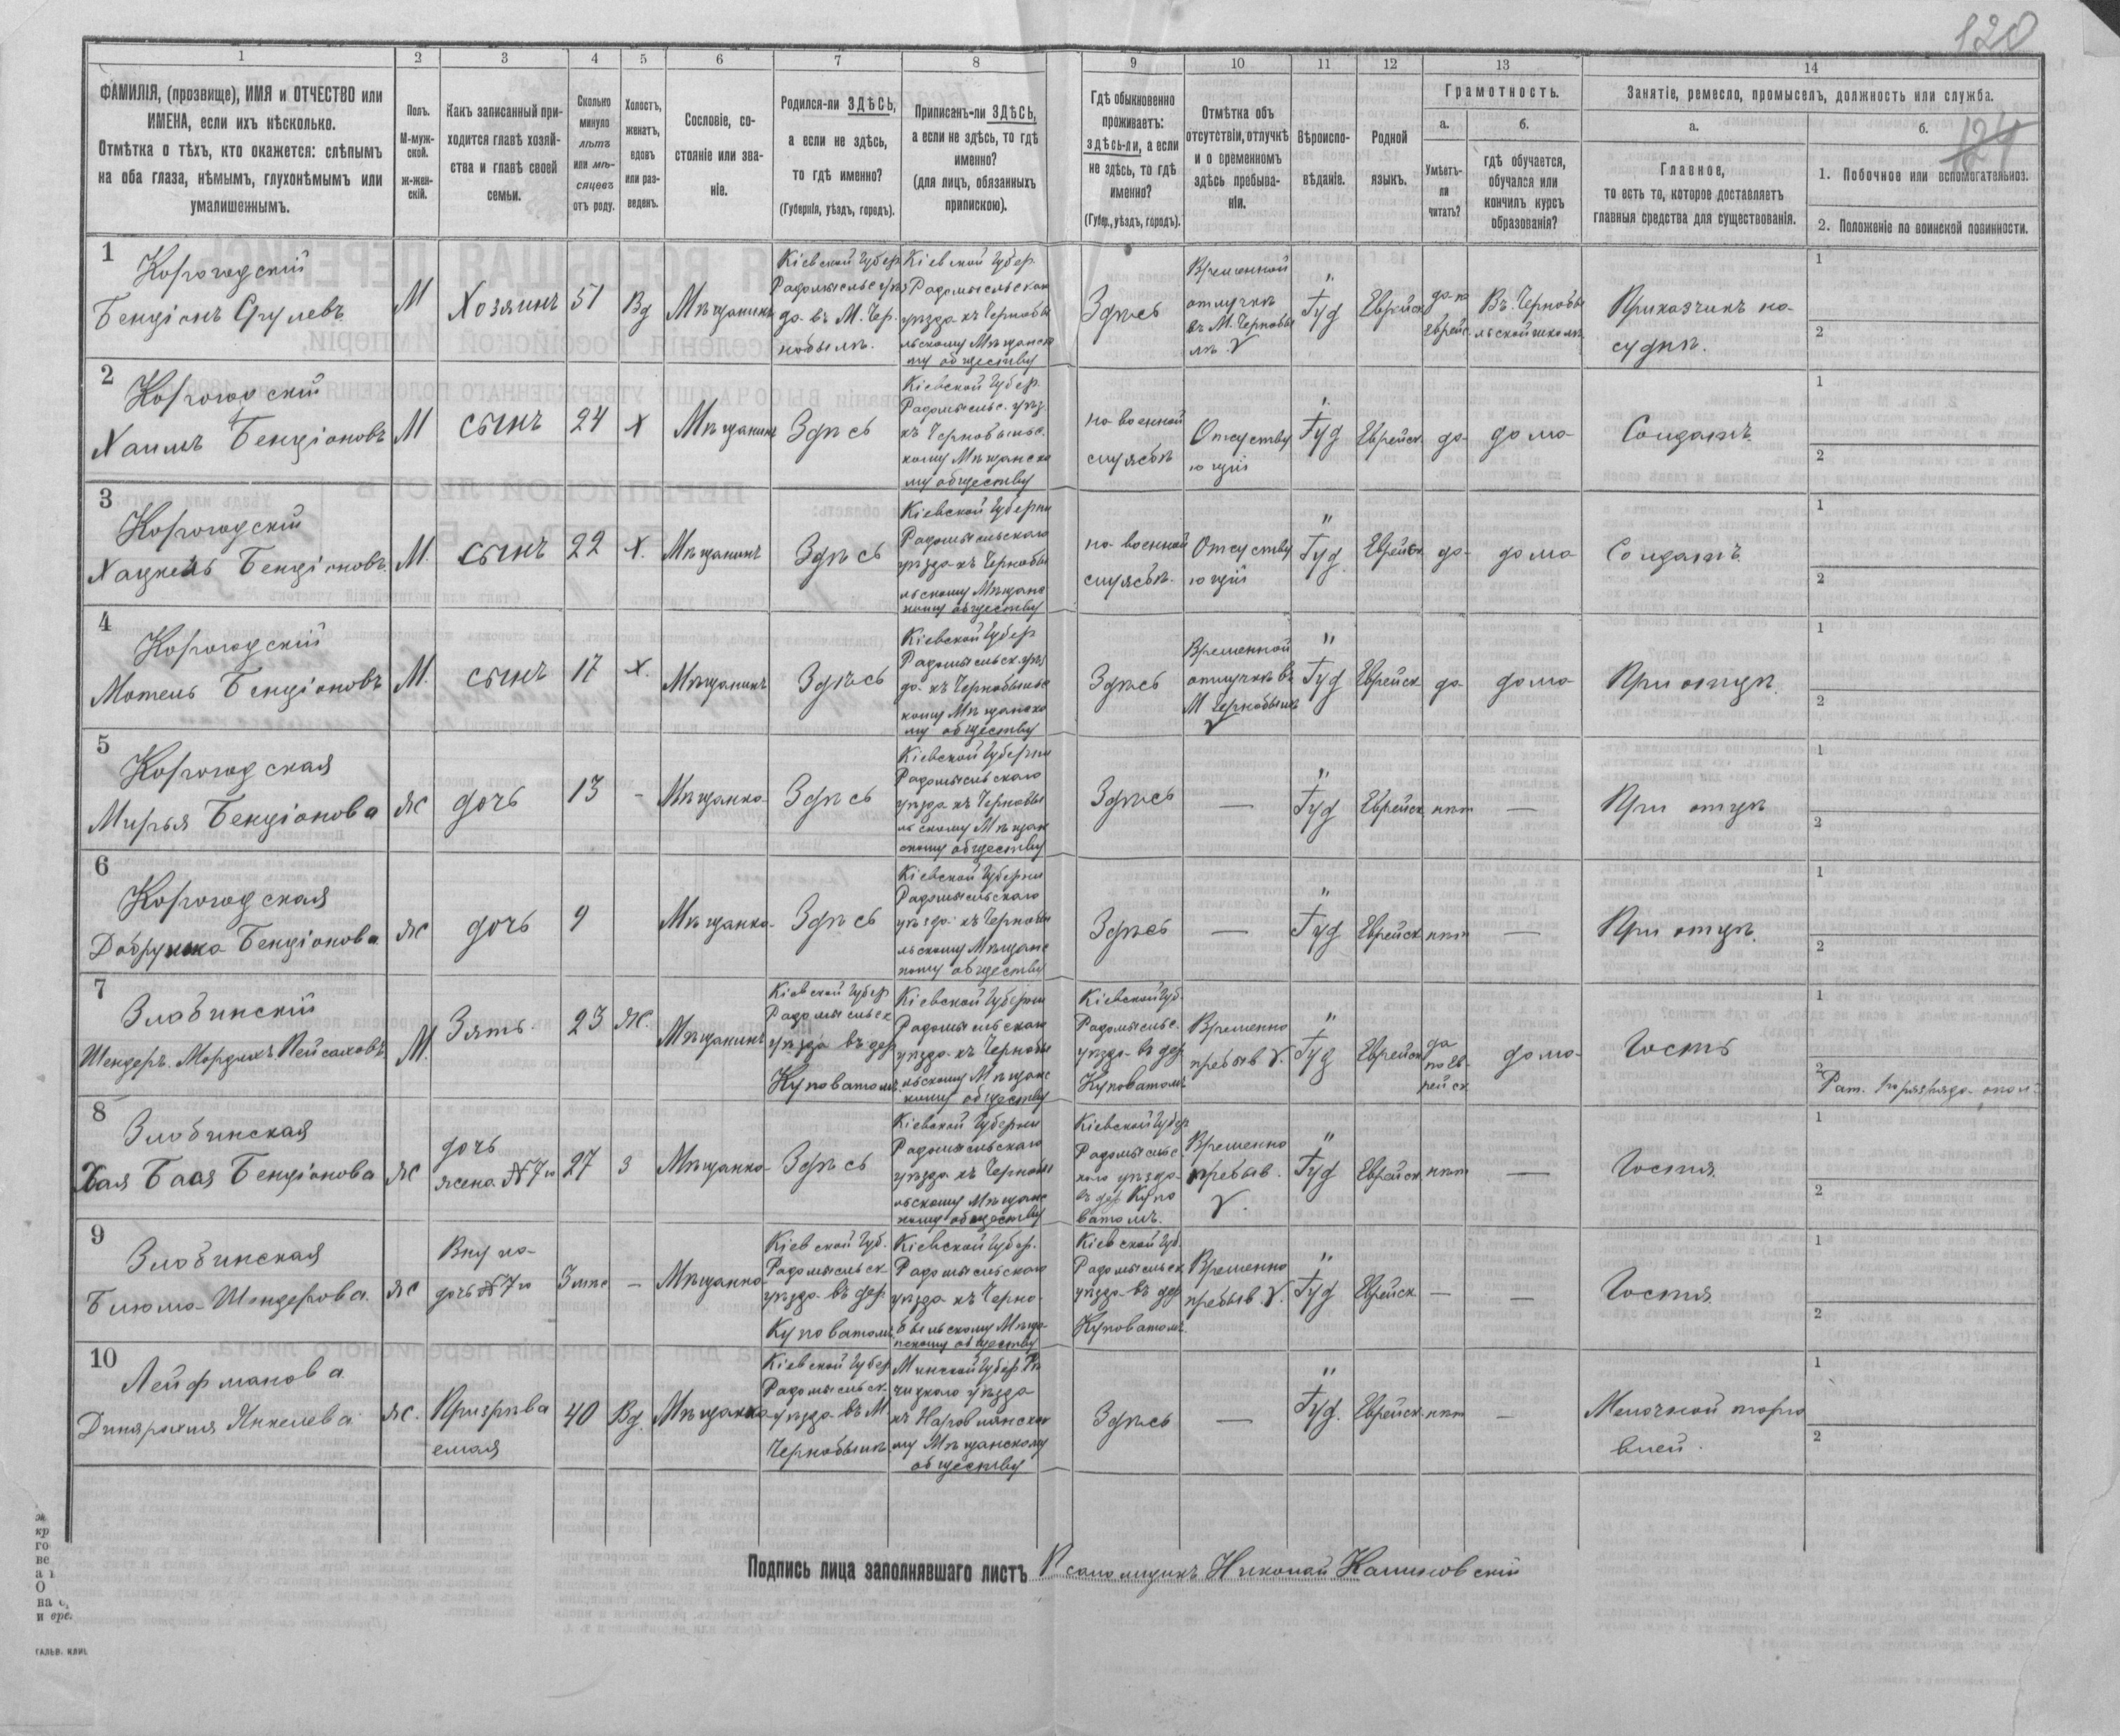 120
1 2 3 4 5 6 7 8 9 10 11 12 13 14
ФАМИЛІЯ, (прозвище), ИМЯ и ОТЧЕСТВО или
ИМЕНА, если ихъ нѣсколько.
Отмѣтка о тѣхъ, кто окажется: слѣпымъ
на оба глаза, нѣмымъ, глухонѣмымъ или
умалишеннымъ.
Полъ.
М-муж-
ской.
ж-жен-
скій.
Какъ записанный при-
ходится главѣ хозяй-
ства и главѣ своей
семьи.
Сколько
минуло
лѣтъ
или мѣ-
сяцевъ
отъ роду.
Холостъ,
женатъ,
вдовъ
или раз-
веденъ.
Сословіе, со-
стояніе или зва-
ніе.
Родился-ли ЗДѢСЬ,
а если не здѣсь,
то гдѣ именно?
(Губернія, уѣздъ, городъ).
Приписанъ-ли ЗДѢСЬ,
а если не здѣсь, то гдѣ
именно?
(для лицъ, обязанныхъ
припискою).
Гдѣ обыкновенно
проживаетъ:
здѣсь-ли, а если
не здѣсь, то гдѣ
именно?
(Губер., уѣздъ, городъ).
Отмѣтка объ
отсутствіи, отлучкѣ
и о временномъ
здѣсь пребыва-
ніи.
Вѣроиспо-
вѣданіе.
Родной
языкъ.
Грамотность.
а.
Умѣетъ-
ли
читать?
б.
гдѣ обучается,
обучался или
кончилъ курсъ
образованія?
Занятіе, ремесло, промыселъ, должность или служба.
а.
Главное,
то есть то, которое доставляетъ
главныя средства для существованія.
б.
124
1. Побочное или вспомогательное.
2. Положеніе по воинской повинности.
1
Корогодскій
Бенціонъ Срулевъ
М
Хозяинъ
51
Вд
Мѣщанинъ
Кіевской Губер.
Радомысльс. уѣз
да въ М. Чер-
нобылѣ.
Кіевской Губер.
Радомысльскаго
уѣзда къ Чернобы
льскому Мѣщанско
му обществу
Здѣсь
Временной
отлучкѣ
въ М. Чернобы
лѣ. V
"
Іуд
Еврейск
да по
еврейс.
Въ Чернобы
льской школѣ
Приказчикъ на
суднѣ.
1
2
2
Корогодскій
Хаимъ Бенціоновъ
М
сынъ
24
х
Мѣщанинъ
Здѣсь
Кіевской Губер.
Радомысльс. уѣз.
къ Чернобыльс.
кому Мѣщанско
му обществу
на военной
службѣ
Отсутству
ющій
"
Іуд
Еврейск.
да
дома
Солдатъ.
1
2
3
Корогодскій
Хацкель Бенціоновъ.
М.
сынъ
22
х.
Мѣщанинъ
Здѣсь
Кіевской Губерни
Радомысльскаго
уѣзда къ Чернобы
льскому Мѣщанс
кому обществу
на военной
службѣ.
Отсутству
ющій
"
Іуд.
Еврейск
да
дома
Солдатъ.
1
2
4
Корогодскій
Мотель Бенціоновъ
М.
сынъ
17
х.
Мѣщанинъ
Здѣсь
Кіевской Губер
Радомысльск. уѣз
да къ Чернобыльс
кому Мѣщанско
му обществу
Здѣсь
Временной
отлучкѣ въ
М Чернобылѣ
V
"
Іуд
Еврейск
да
дома
При отцѣ.
1
2
5
Корогодская
Мирья Бенціонова
ж
дочь
13
-
Мѣщанка
Здѣсь
Кіевской Губерни
Радомысльскаго
уѣзда къ Чернобы
льскому Мѣщан
скому обществу
Здѣсь
—
"
Іуд
Еврейск
нѣт
—
При отцѣ
1
2
6
Корогодская
Добрушка Бенціонова
ж
дочь
9
Мѣщанка
Здѣсь
Кіевской Губерни
Радомысльскаго
уѣзда къ Чернобы
льскому Мѣщанс
кому обществу
Здѣсь
—
"
Іуд
Еврейск
нѣт
—
При отцѣ.
1
2
7
Злобинскій
Шендеръ Мордухъ Пейсаховъ
М.
Зять.
23
Ж.
Мѣщанинъ
Кіевской Губер
Радомысльск
уѣзда въ дер.
Куповатомъ.
Кіевской Губерни
Радомысльскаго
уѣзда къ Чернобы
льскому Мѣщанс
кому обществу
Кіевской Губ.
Радомысльс.
уѣзда въ дер
Куповатомъ
Временно
пребыв V.
"
Іуд
Еврейск
да
по ев-
рейск
дома
Гость
1
2
8
Злобинская
Хая Бася Бенціонова
ж
дочь
жена №7го
27
з
Мѣщанка
Здѣсь
Кіевской Губерни
Радомысльскаго
уѣзда къ Чернобы
льскому Мѣщанс
кому обществу
Кіевской Губер
Радомысльс
каго уѣзда
въ дер Купо
ватомъ.
Временно
пребыв.
V.
"
Іуд
Еврейск
нѣт
—
Гостья.
1
2
9
Злобинская
Блюма Шендерова.
ж
Внучка
дочь №7го
—
Мѣщанка
Кіевской Губ.
Радомысльск
уѣзда въ дер.
Куповатомъ.
Кіевской Губер.
Радомысльскаго
уѣзда къ Черно-
быльскому Мѣща-
нскому обществу
Кіевской Губ.
Радомысльск
уѣзда въ дер
Куповатомъ.
Временно
пребыв. V.
"
Іуд
Еврейск
—
—
Гостья.
1
2
10
Лейфманова
Янкелева
ж.
Призрѣва
емая
40
Вд.
Мѣщанка
Кіевской Губер
Радомысльск
уѣзда въ М.
Чернобылѣ
Минской Губер Рѣ
чицкаго уѣзда
къ Наровлянско
му Мѣщанскому
обществу
Здѣсь
—
"
Іуд.
Еврейск
нѣт
—
Мелочной торго
влей.
1
2
Подпись лица заполнявшаго листъ Псаломщикъ Николай Калиновскій